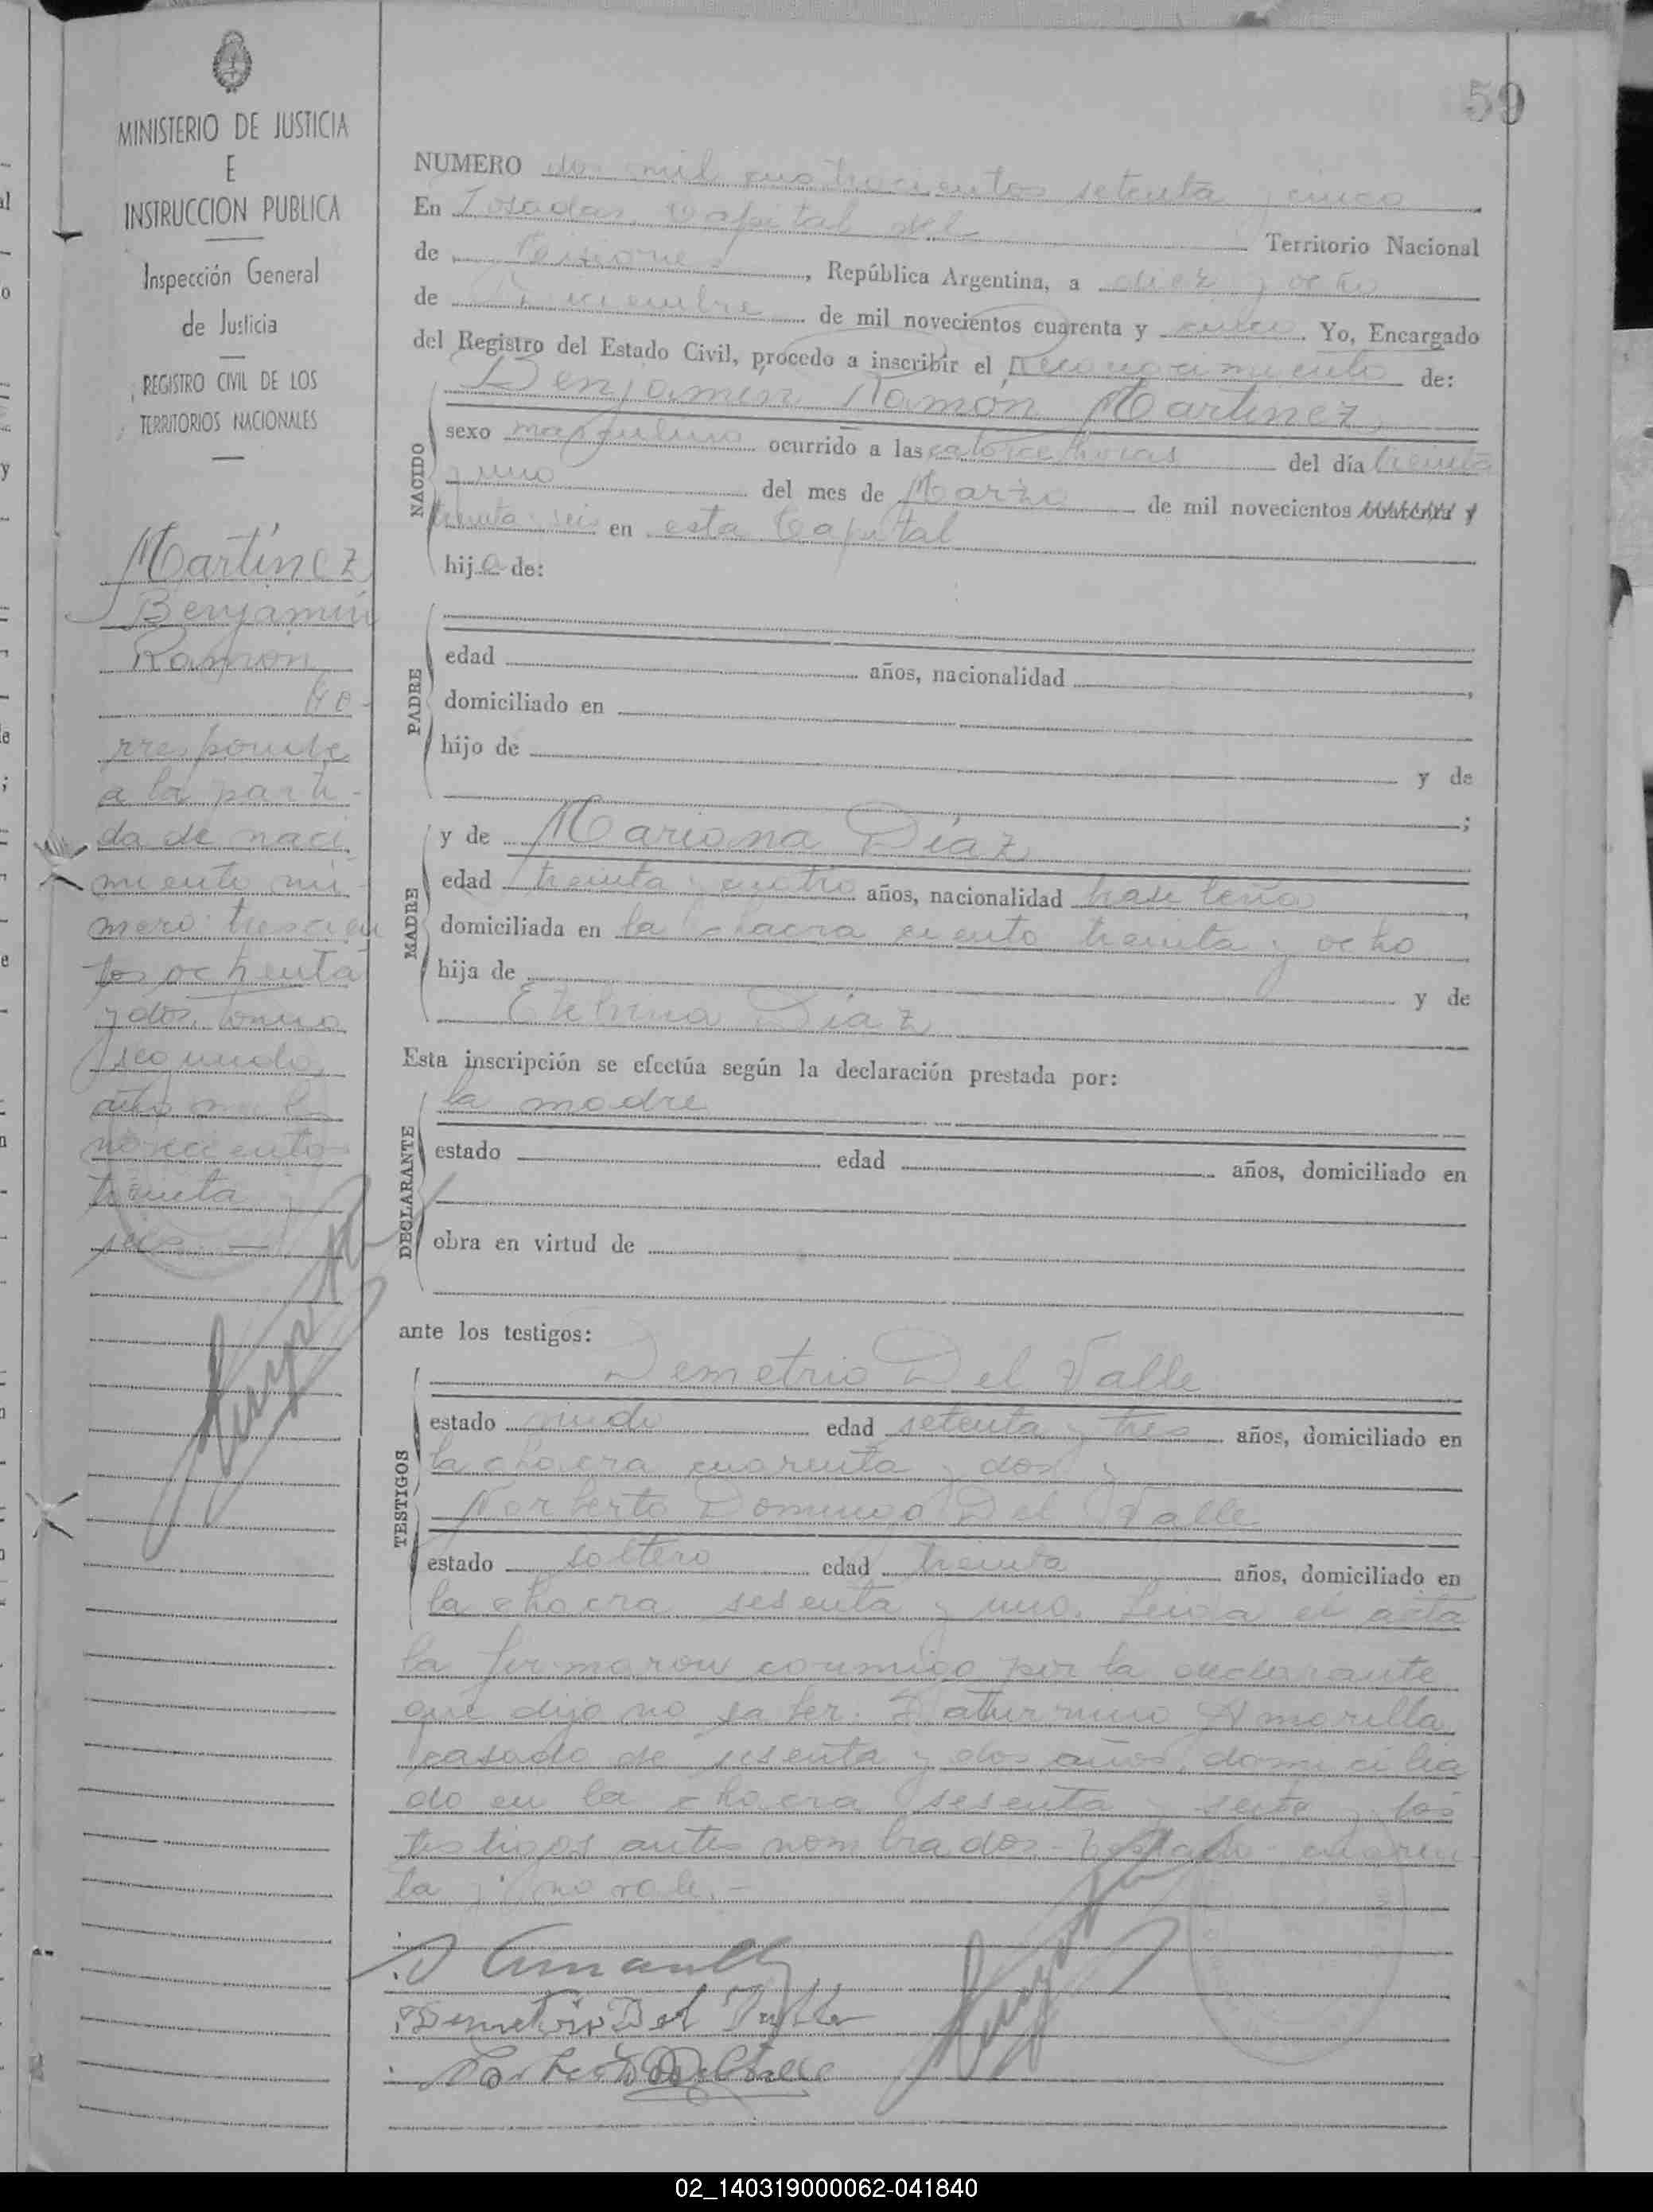 59
MINISTERIO DE JUSTICIA
E
INSTRUCCION PUBLICA
Inspección General
de Justicia
REGISTRO CIVIL DE LOS
TERRITORIOS NACIONALES
Martínez
Benjamin
Ramon
rresponde
a la parti-
da de naci
miento nú-
mero trescien
tos ochenta
y dos, tomo
segundo
año mil
novecientos
treinta
seis.—
NUMERO dos mil cuatrocientos setenta y cinco
En Posadas, Capital del Territorio Nacional
de Misiones, República Argentina, a diez y ocho
de Diciembre de mil novecientos cuarenta y cinco. Yo, Encargado
del Registro del Estado Civil, procedo a inscribir el Reconocimiento de:
NACIDO
Benjamin Ramón Martinez
sexo masculino ocurrido a las catorce horas del día treinta
y uno del mes de Marzo de mil novecientos cuarenta y
treinta seis en esta Capital
hijo de:
PADRE
edad años, nacionalidad ,
domiciliado en
hijo de y de
;
MADRE
y de Mariana Díaz
edad treinta y cuatro años, nacionalidad brasileña,
domiciliada en la chacra ciento treinta y ocho
hija de y de
Etelvina Díaz
Esta inscripción se efectúa según la declaración prestada por:
DECLARANTE
la madre
estado edad años, domiciliado en
obra en virtud de
ante los testigos:
TESTIGOS
Demetrio Del Valle
estado viudo edad setenta y tres años, domiciliado en
la chacra cuarenta y dos y
Norberto Domingo Del Valle
estado soltero edad treinta años, domiciliado en
la chacra sesenta y uno. Leida el acta
la firmaron conmigo por la declarante
que dijo no saber: Saturnino Amarilla
casado de sesenta y dos años, domicilia
do en la chacra sesenta y los
testigos antes nombrados - Testado - cuaren
ta y: no vale.-
Demetrio Del Valle
Norberto Del Valle
02_140319000062-041840